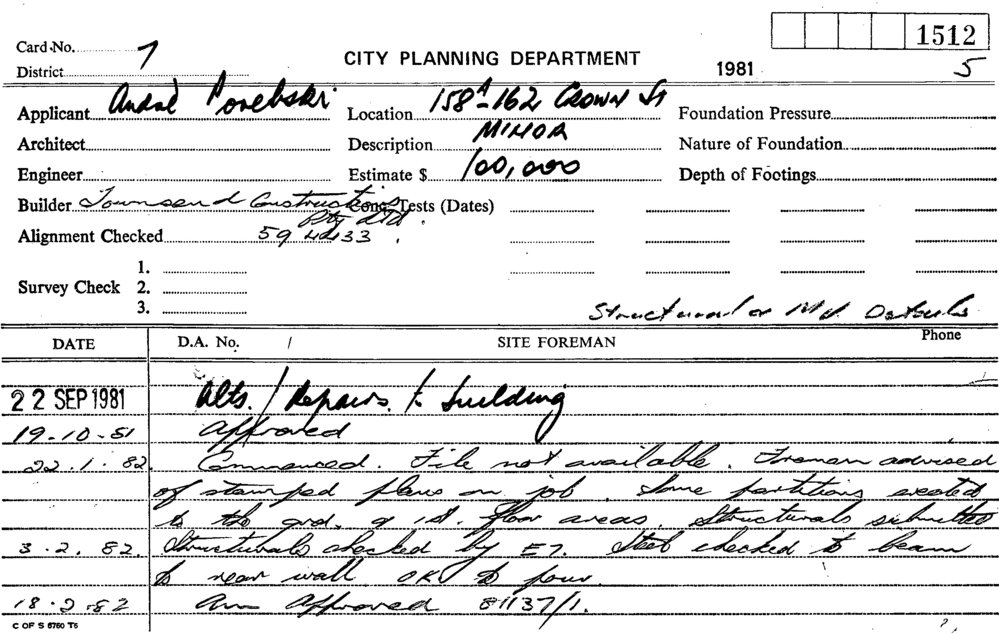 1512
Card No. 7
CITY PLANNING DEPARTMENT
District
1981 5
Applicant André Porebski Location 158A-162 Crown St Foundation Pressure
Architect Description MINOR Nature of Foundation
Engineer Estimate $ 100,000 Depth of Footings
Builder Townsend Constructions Pty Ltd. Conc. Tests (Dates)
Alignment Checked 59 4433
1.
Survey Check 2.
3.
Structural or Details
DATE D.A. No. / SITE FOREMAN Phone
22 SEP 1981 Alts. / Repairs. to building
19-10-81 Approved
22.1.82. Commenced. File not available. Foreman advised
of stamped plans on job. Some partitions erected
to the grd. & 1st. floor areas. Structurals submitted
3.2.82. Structurals checked by E7. Steel checked to beam
to rear wall OK to pour.
18-2-82 Am Approved 81137/1.
C OF S 6760 T6